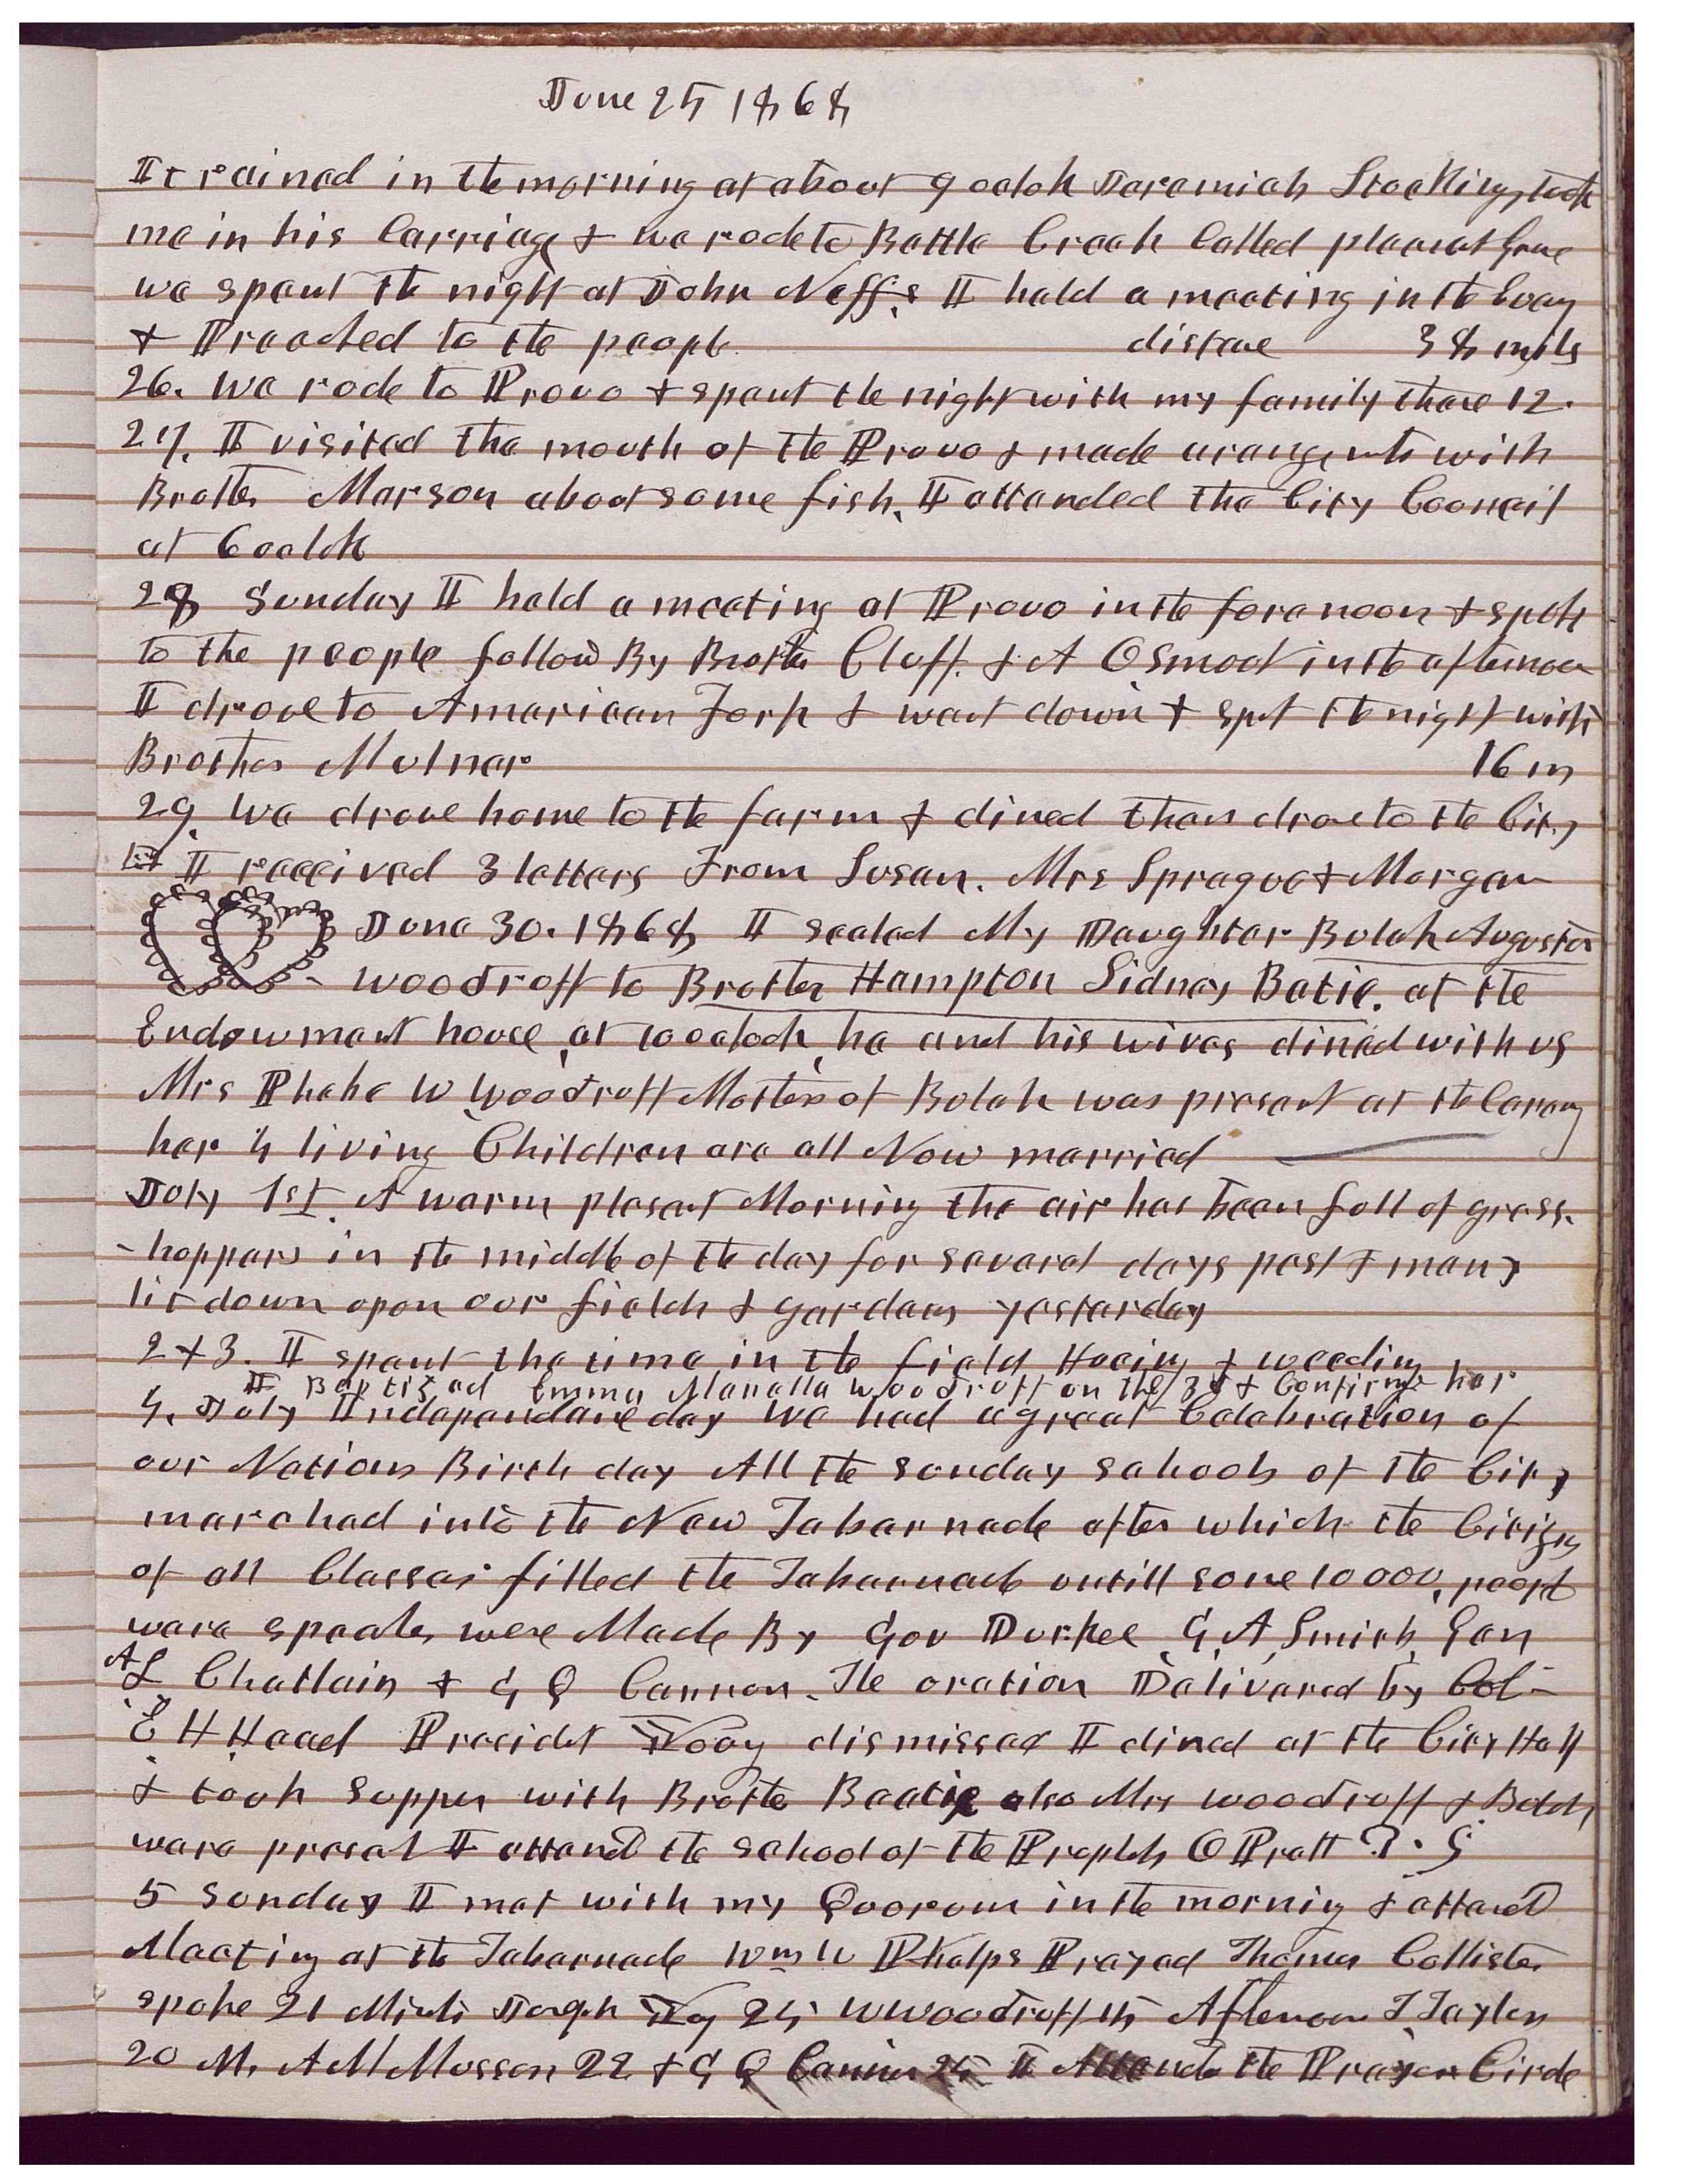 June 25 1868
It rained in the morning at about 9 oclok Jeremiah Stocking took
me in his Carriage & we rode to Battle Creek Called pleasant Grove
we spent the night at John Neff,s I held a meeting in the Eveng
& Preached to the people distance 38 mils
26. we rode to Provo & spent the night with my family there 12.
27. I visited the mouth of the Provo & made arangments with
Brother Marson about some fish, I attended the City Council
at 6 oclok
28 Sunday I held a meeting at Provo in the forenoon & spok
to the people follow By Brother Cluff. & A Osmod in the afternoon
I drove to American Fork & went down & spet the night with
Brother Mulner 16 m
29 We drove home to the farm & dined then drove to the City
I received 3 letters From Susan. Mrs Sprague & Morgan
June 30. 1868 I sealed My Daughter Bulah Augusta
woodruff to Brother Hampton Sidney Batie. at the
Endowment house at 10 oclock he and his wives dined with us
Mrs Phebe W Woodruff Mother of Bulah was present at the Cerony
her 4 living Children are all Now married
July 1st. A warm plesant Morning the air has been full of grass-
-hoppers in the middle of the day for several days past & many
lit down upon our fields & gardens yesterday
2 & 3. I spent the time in the field Hoeing & weeding
I Baptized Emma Manella Woodruff on the 3d & Confirmed her
4. July Independance day we had a great Celebration of
our Nations Birth day All the sunday schools of the City
marched into the New Tabernacle after which the Citizens
of all Classes filled the Tabernacle untill some 10000, peopl
were speches were Made By Gov Durkee G. A. Smith, Gen
A L Chatlain & G Q Cannon. The oration Delivered by Col-
E H Head Presidet Young dismissed I dined at the City Hall
& took supper with Brothe Beatie also Mrs woodruff & Bulah
were present I attend the school of the Prophets O Pratt P. G
5 Sunday I met with my Quorum in the morning & attend
Meeting at the Tabernacle Wm W Phelps Prayed Thomas Collister
spoke 21 Minuts Joseph Yog 24 W Woodruff 15 Afternoon J. Taylor
20 M. A M Musser 22 & G Q Cannon 25 I Attends the Prayer Circle